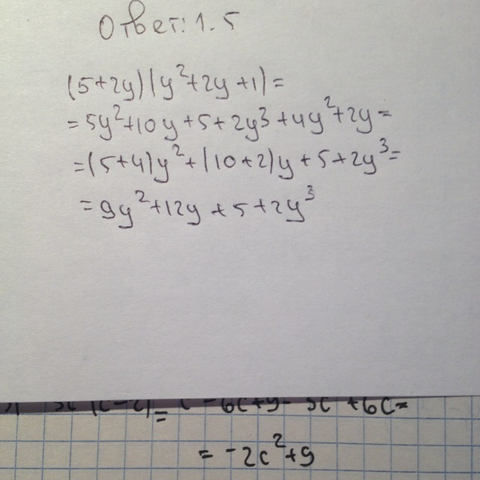 Ответ: 1.5
(5+2y)(y²+2y+1)=
=5y²+10y+5+2y³+4y²+2y=
=(5+4)y²+(10+2)y+5+2y³=
=9y²+12y+5+2y³
= -2c²+9